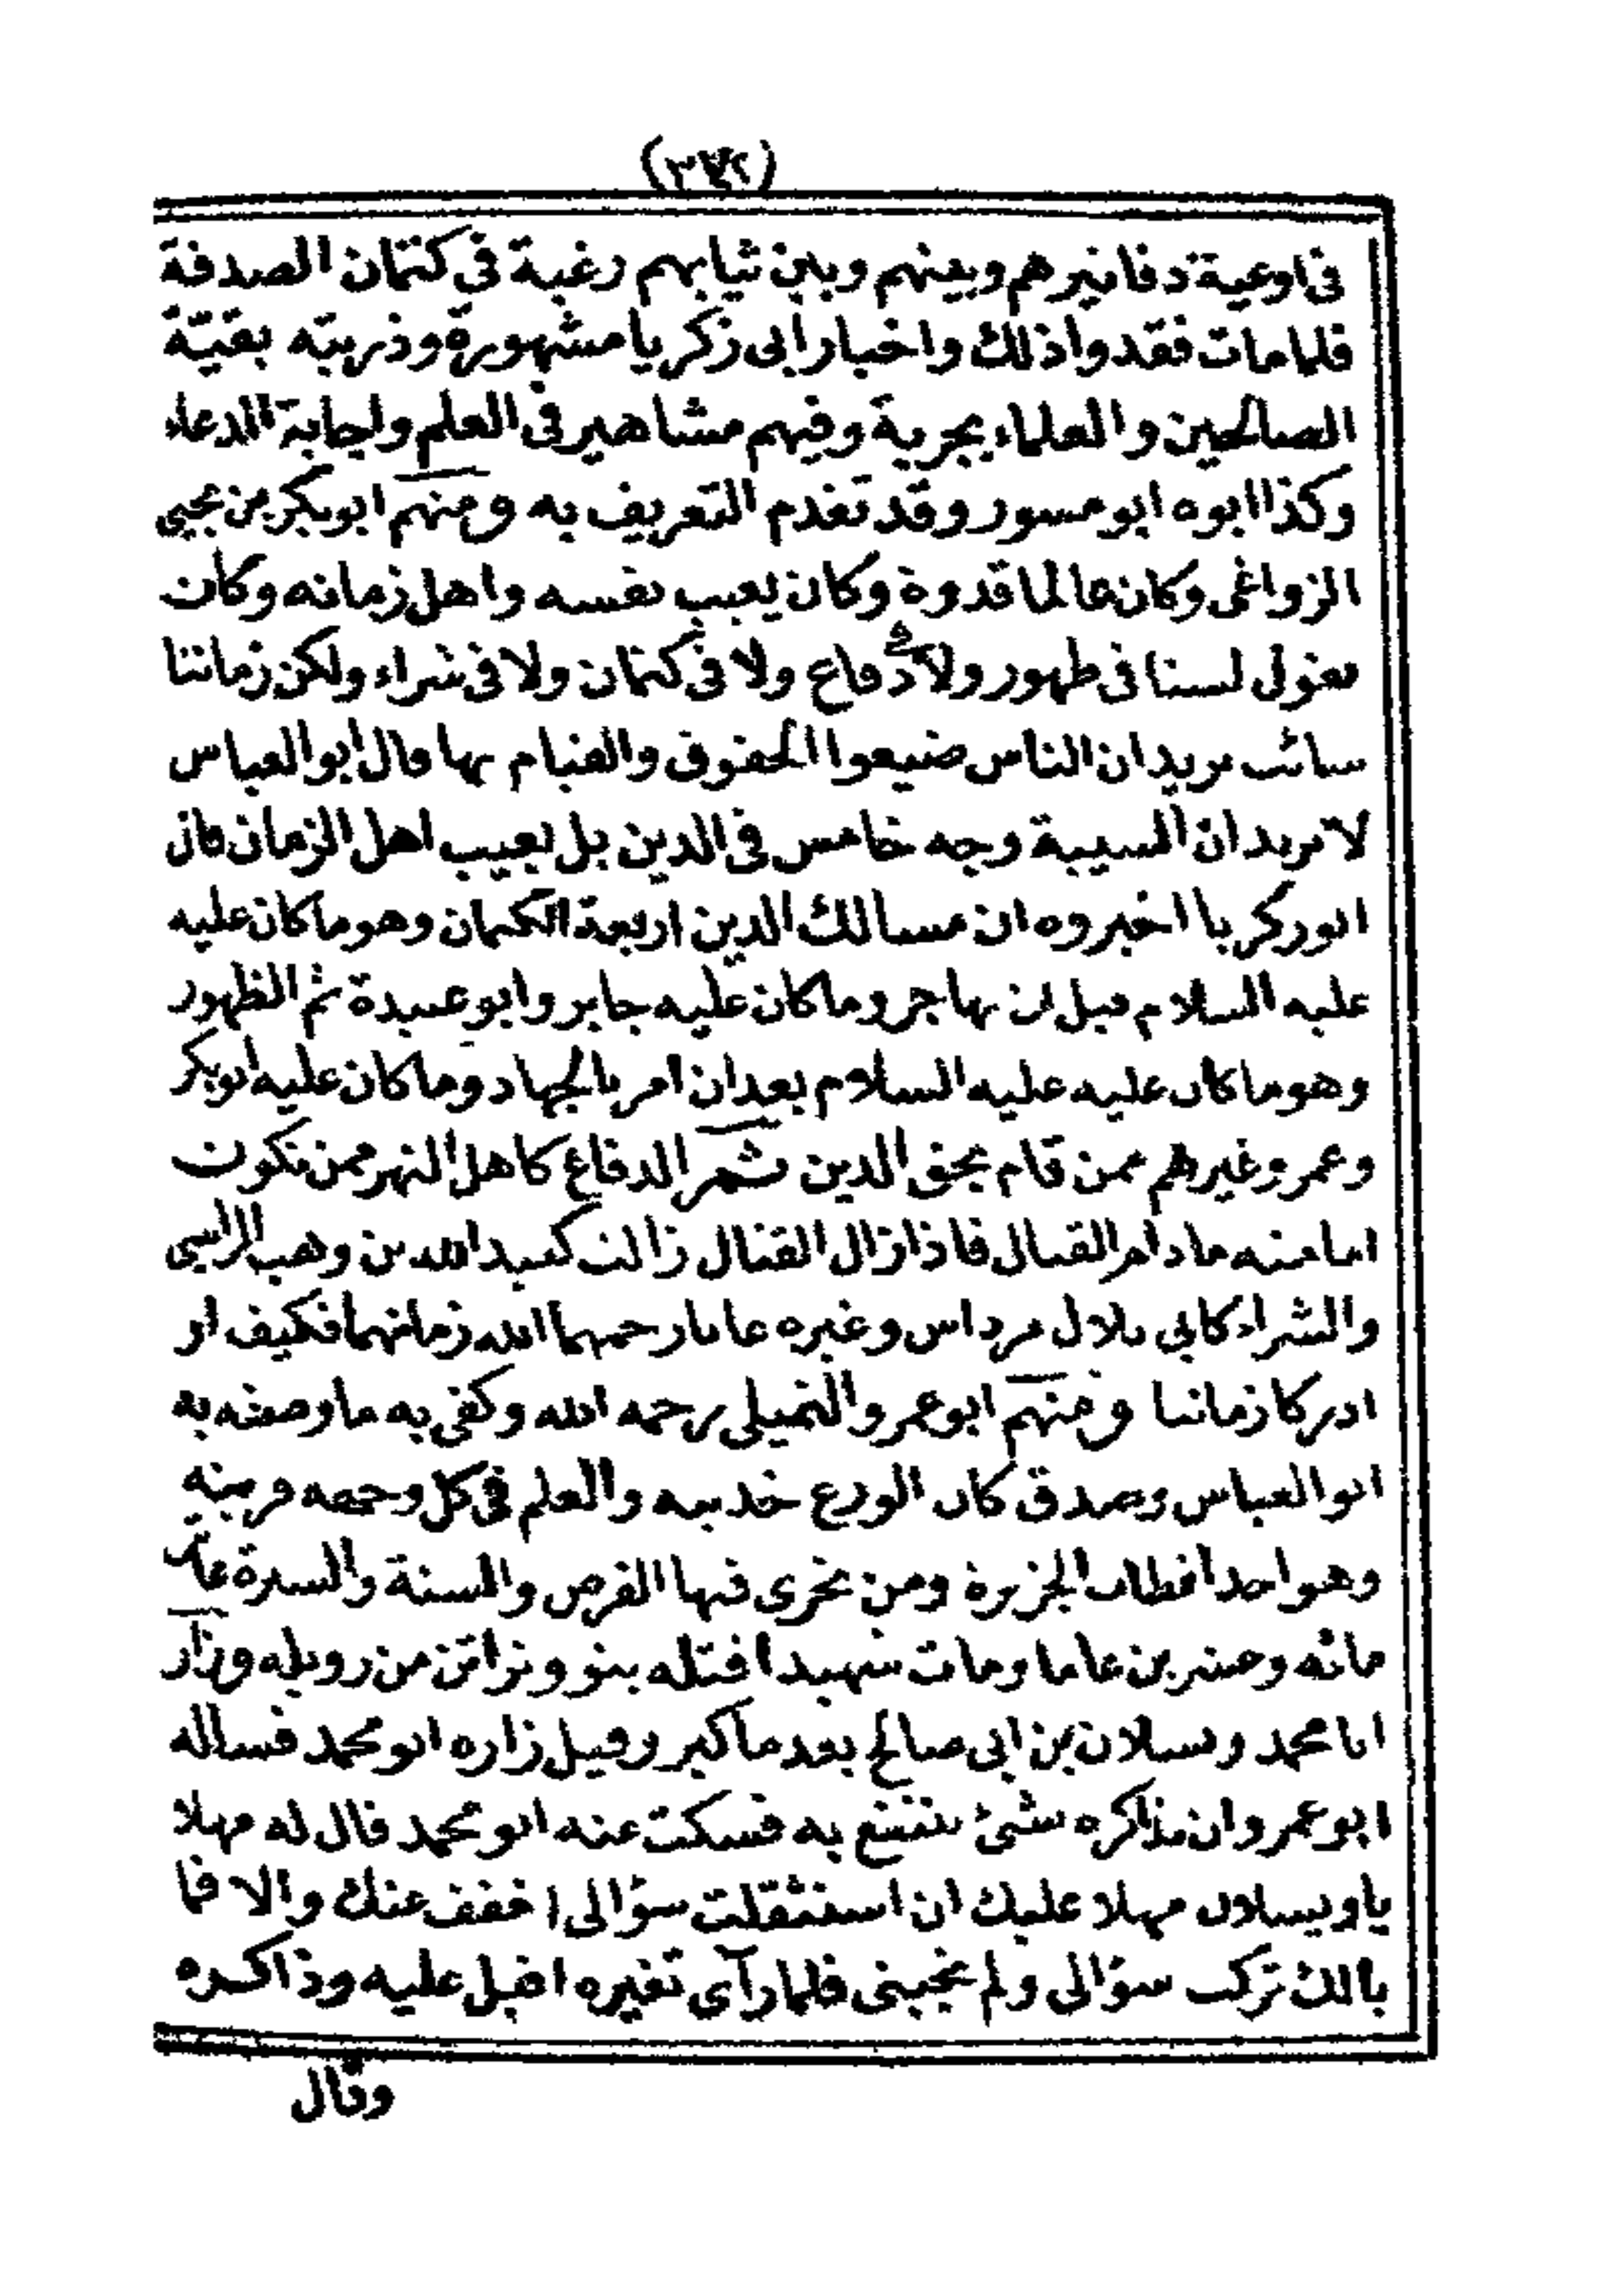 في اوعية دفانيرهم وبينهم وبين ثيابهم رغبة في كتمان الصدقة
فلما مات فقدوا ذلك واخبار ابى زكريا مشهورة وذريته بقيّة
الصالحين والعلماء بجربة وفيهم مشاهير في العلم واجابة الدعاء
وكذا ابوه ابو مسور وقد تقدم التعريف به ومنهم ابو بكر بن يحيى
الزواغى وكان عالما قدوة وكان يعيب نفسه واهل زمانه وكان
يقول لسنا فى ظهور ولا فى دفاع ولا فى كتمان ولا فى شراء ولكن زماننا
سائب يريد ان الناس ضيعوا الحقوق والقيام بها قال ابو العباس
لا تريد ان السيبة وجه خامس فى الدين بل يعيب اهل الزمان فان
ابو زكريا اخبروه ان مسالك الدين اربعة الكتمان وهو ما كان عليه
عليه السلام قبل ان يهاجر وما كان عليه جابر وابو عبيدة ثم الظهور
وهو ما كان عليه عليه السلام بعد ان امر بالجهاد وما كان عليه ابو بكر
وعمر وغيرهم ممن قام بحق الدين ثم الدفاع كاهل النهر ممن تكون
امامته ما دام القتال فاذا زال القتال زالت كعبد الله بن وهب الراسبي
والشراء كابي بلال مرداس وغيره عابا رحمهما الله زمانهما فكيف لو
ادركا زماننا ومنهم ابو عمرو النميلى رحمه الله وكفى به ما وصفه به
ابو العباس وصدق كان الورع خدينه والعلم فى كل وجهه قرينه
وهو احد اقطاب الجزيرة ومن تحرى فيها الفرض والسنة والسيرة عاش
مائة وعشرين عاما ومات شهيدا قتله بنو ونزاتن من رويله وزار
ابا محمد ويسلان بن ابى صالح بعد ما كبر وقيل زاره ابو محمد فساله
ابو عمرو ان مذاكره شئ ينتفع به فسكت عنه ابو محمد قال له مهلا
يا ويسلان مهلا عليك ان استثقلت سؤالى اخفف عنك والا فما
بالك تركت سؤالى ولم تجبنى فلما رآى تغيره اقبل عليه وذاكره
وقال